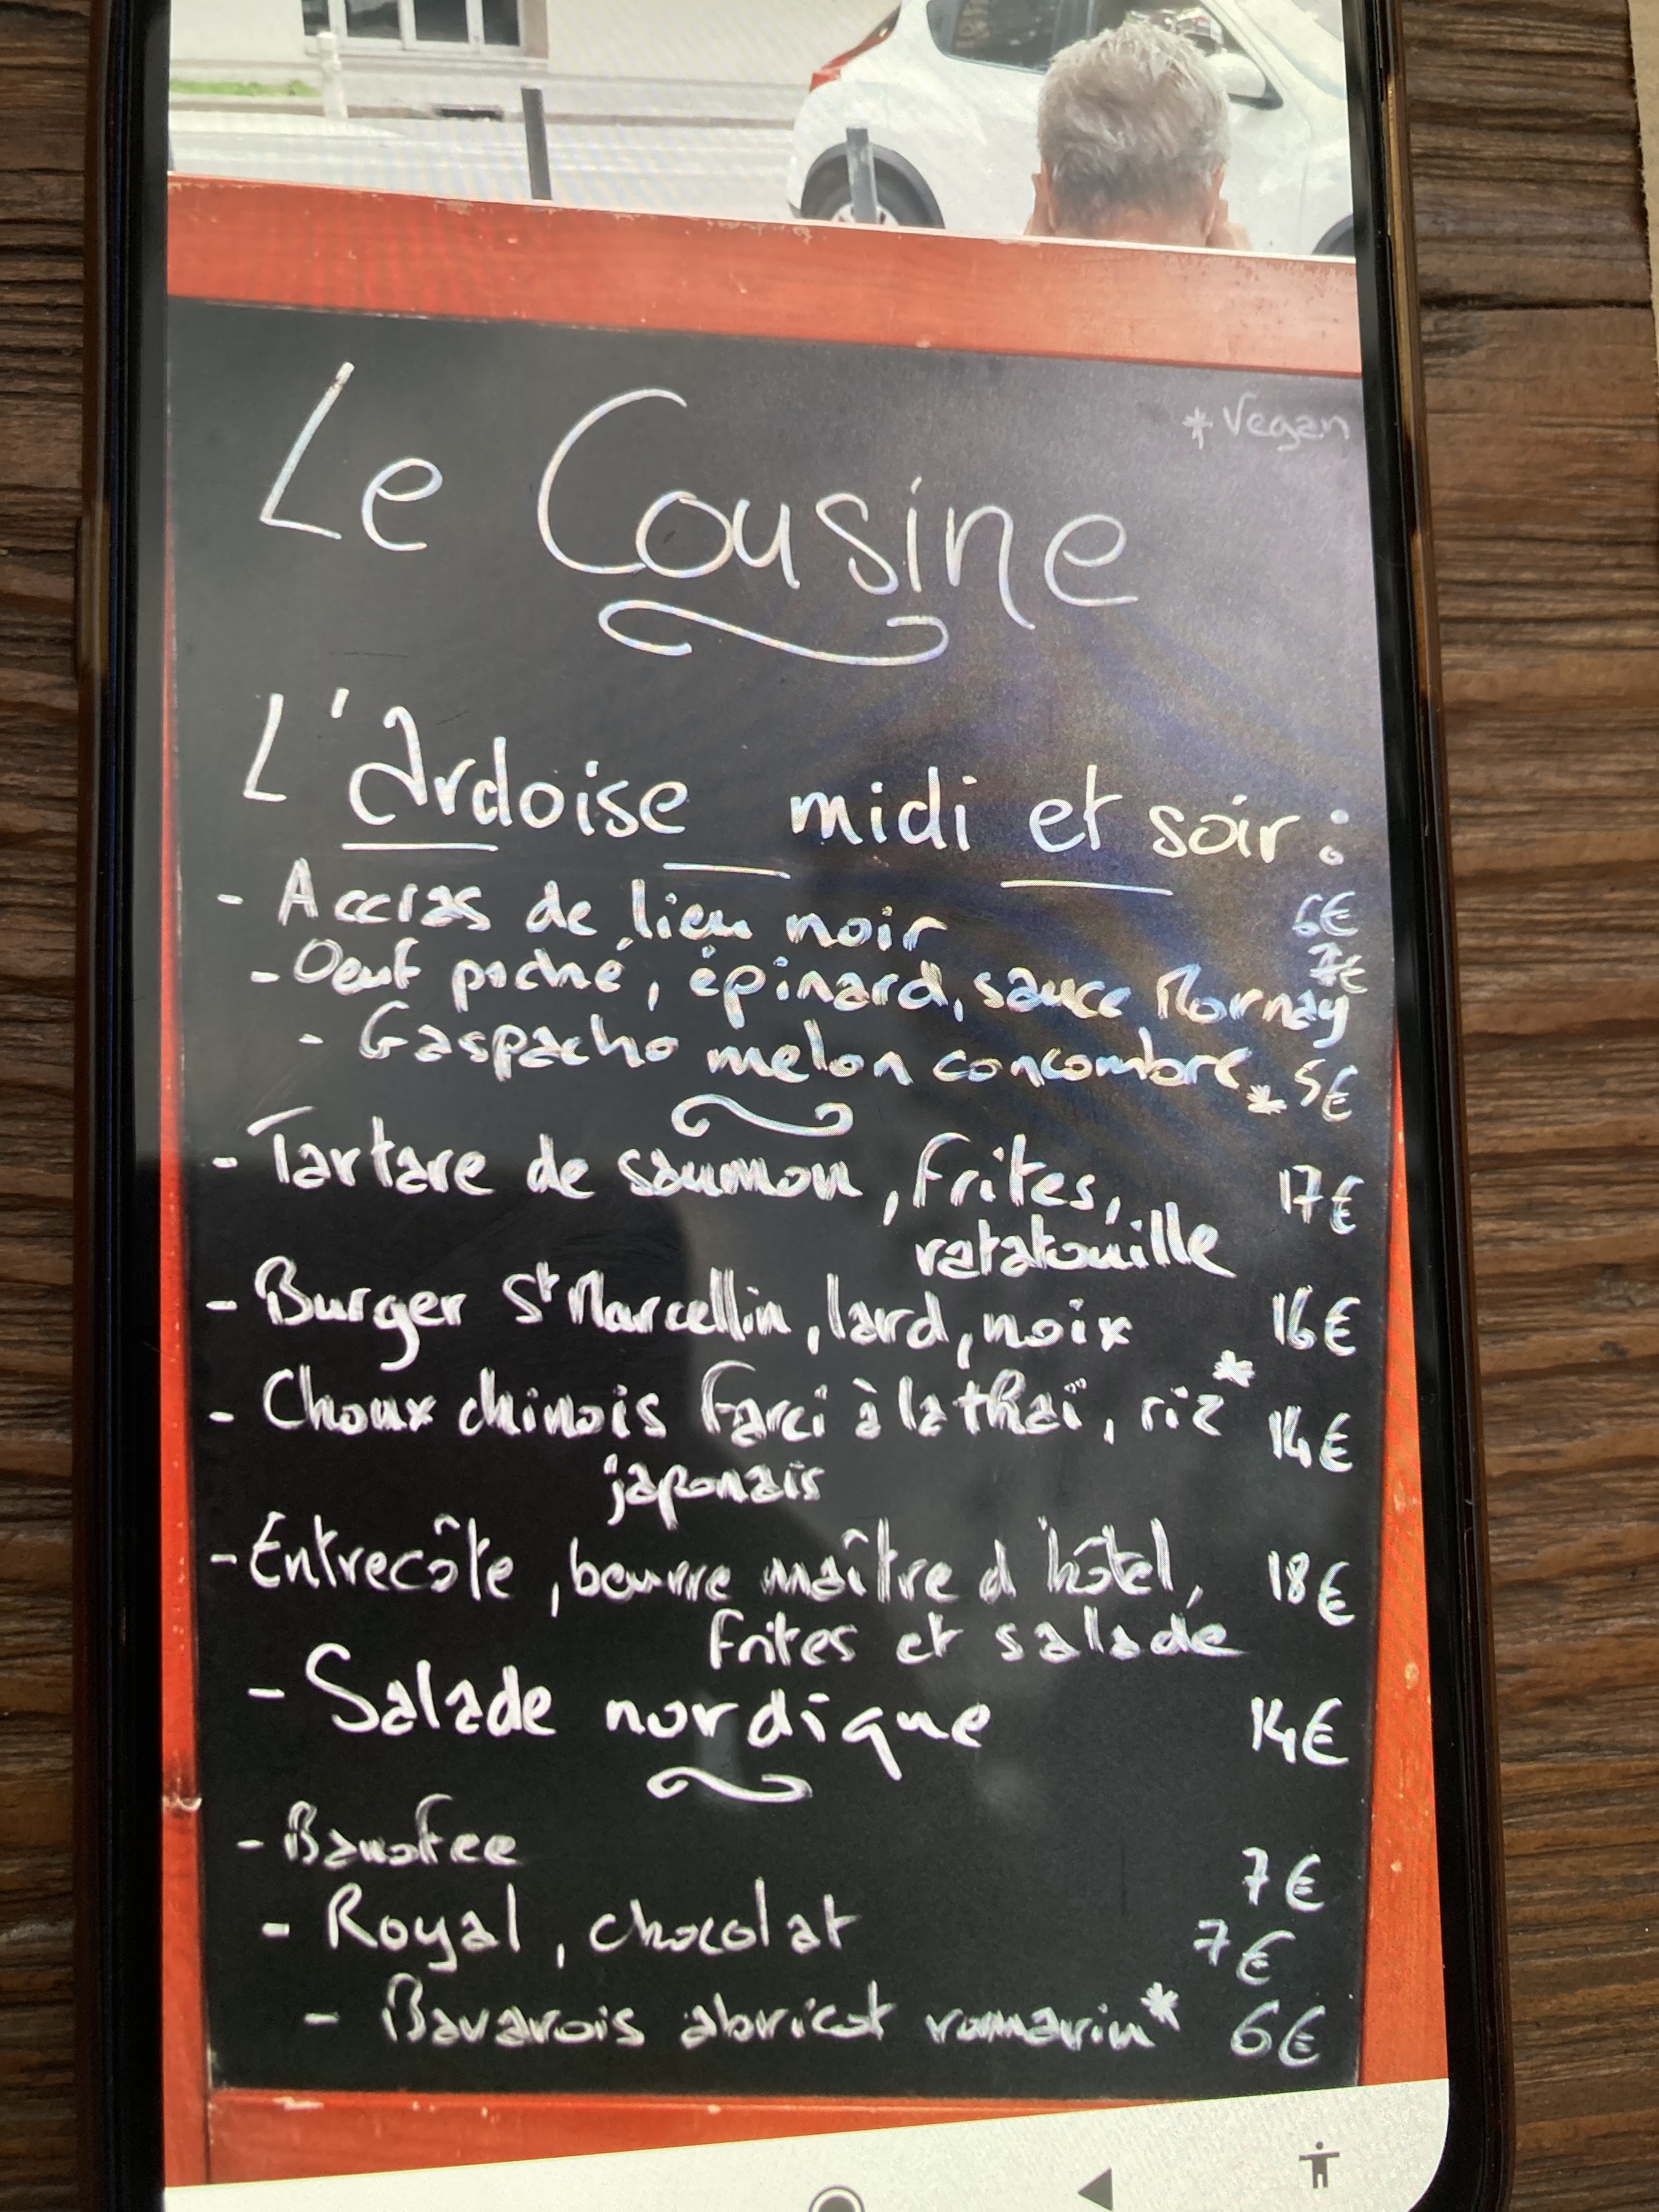 * Vegan
Le Cousine
L'Ardoise midi et soir :
- Accras de lieu noir 6€
- Oeuf poché, épinard, sauce Mornay 7€
- Gaspacho melon concombre * 5€
- Tartare de saumon, frites, 17€
ratatouille
- Burger St Marcellin, lard, noix 16€
- Choux chinois farci à la thaï, riz * 14€
japonais
- Entrecôte, beurre maître d'hôtel, 18€
frites et salade
- Salade nordique 14€
- Banofee 7€
- Royal, chocolat 7€
- Bavarois abricot romarin * 6€